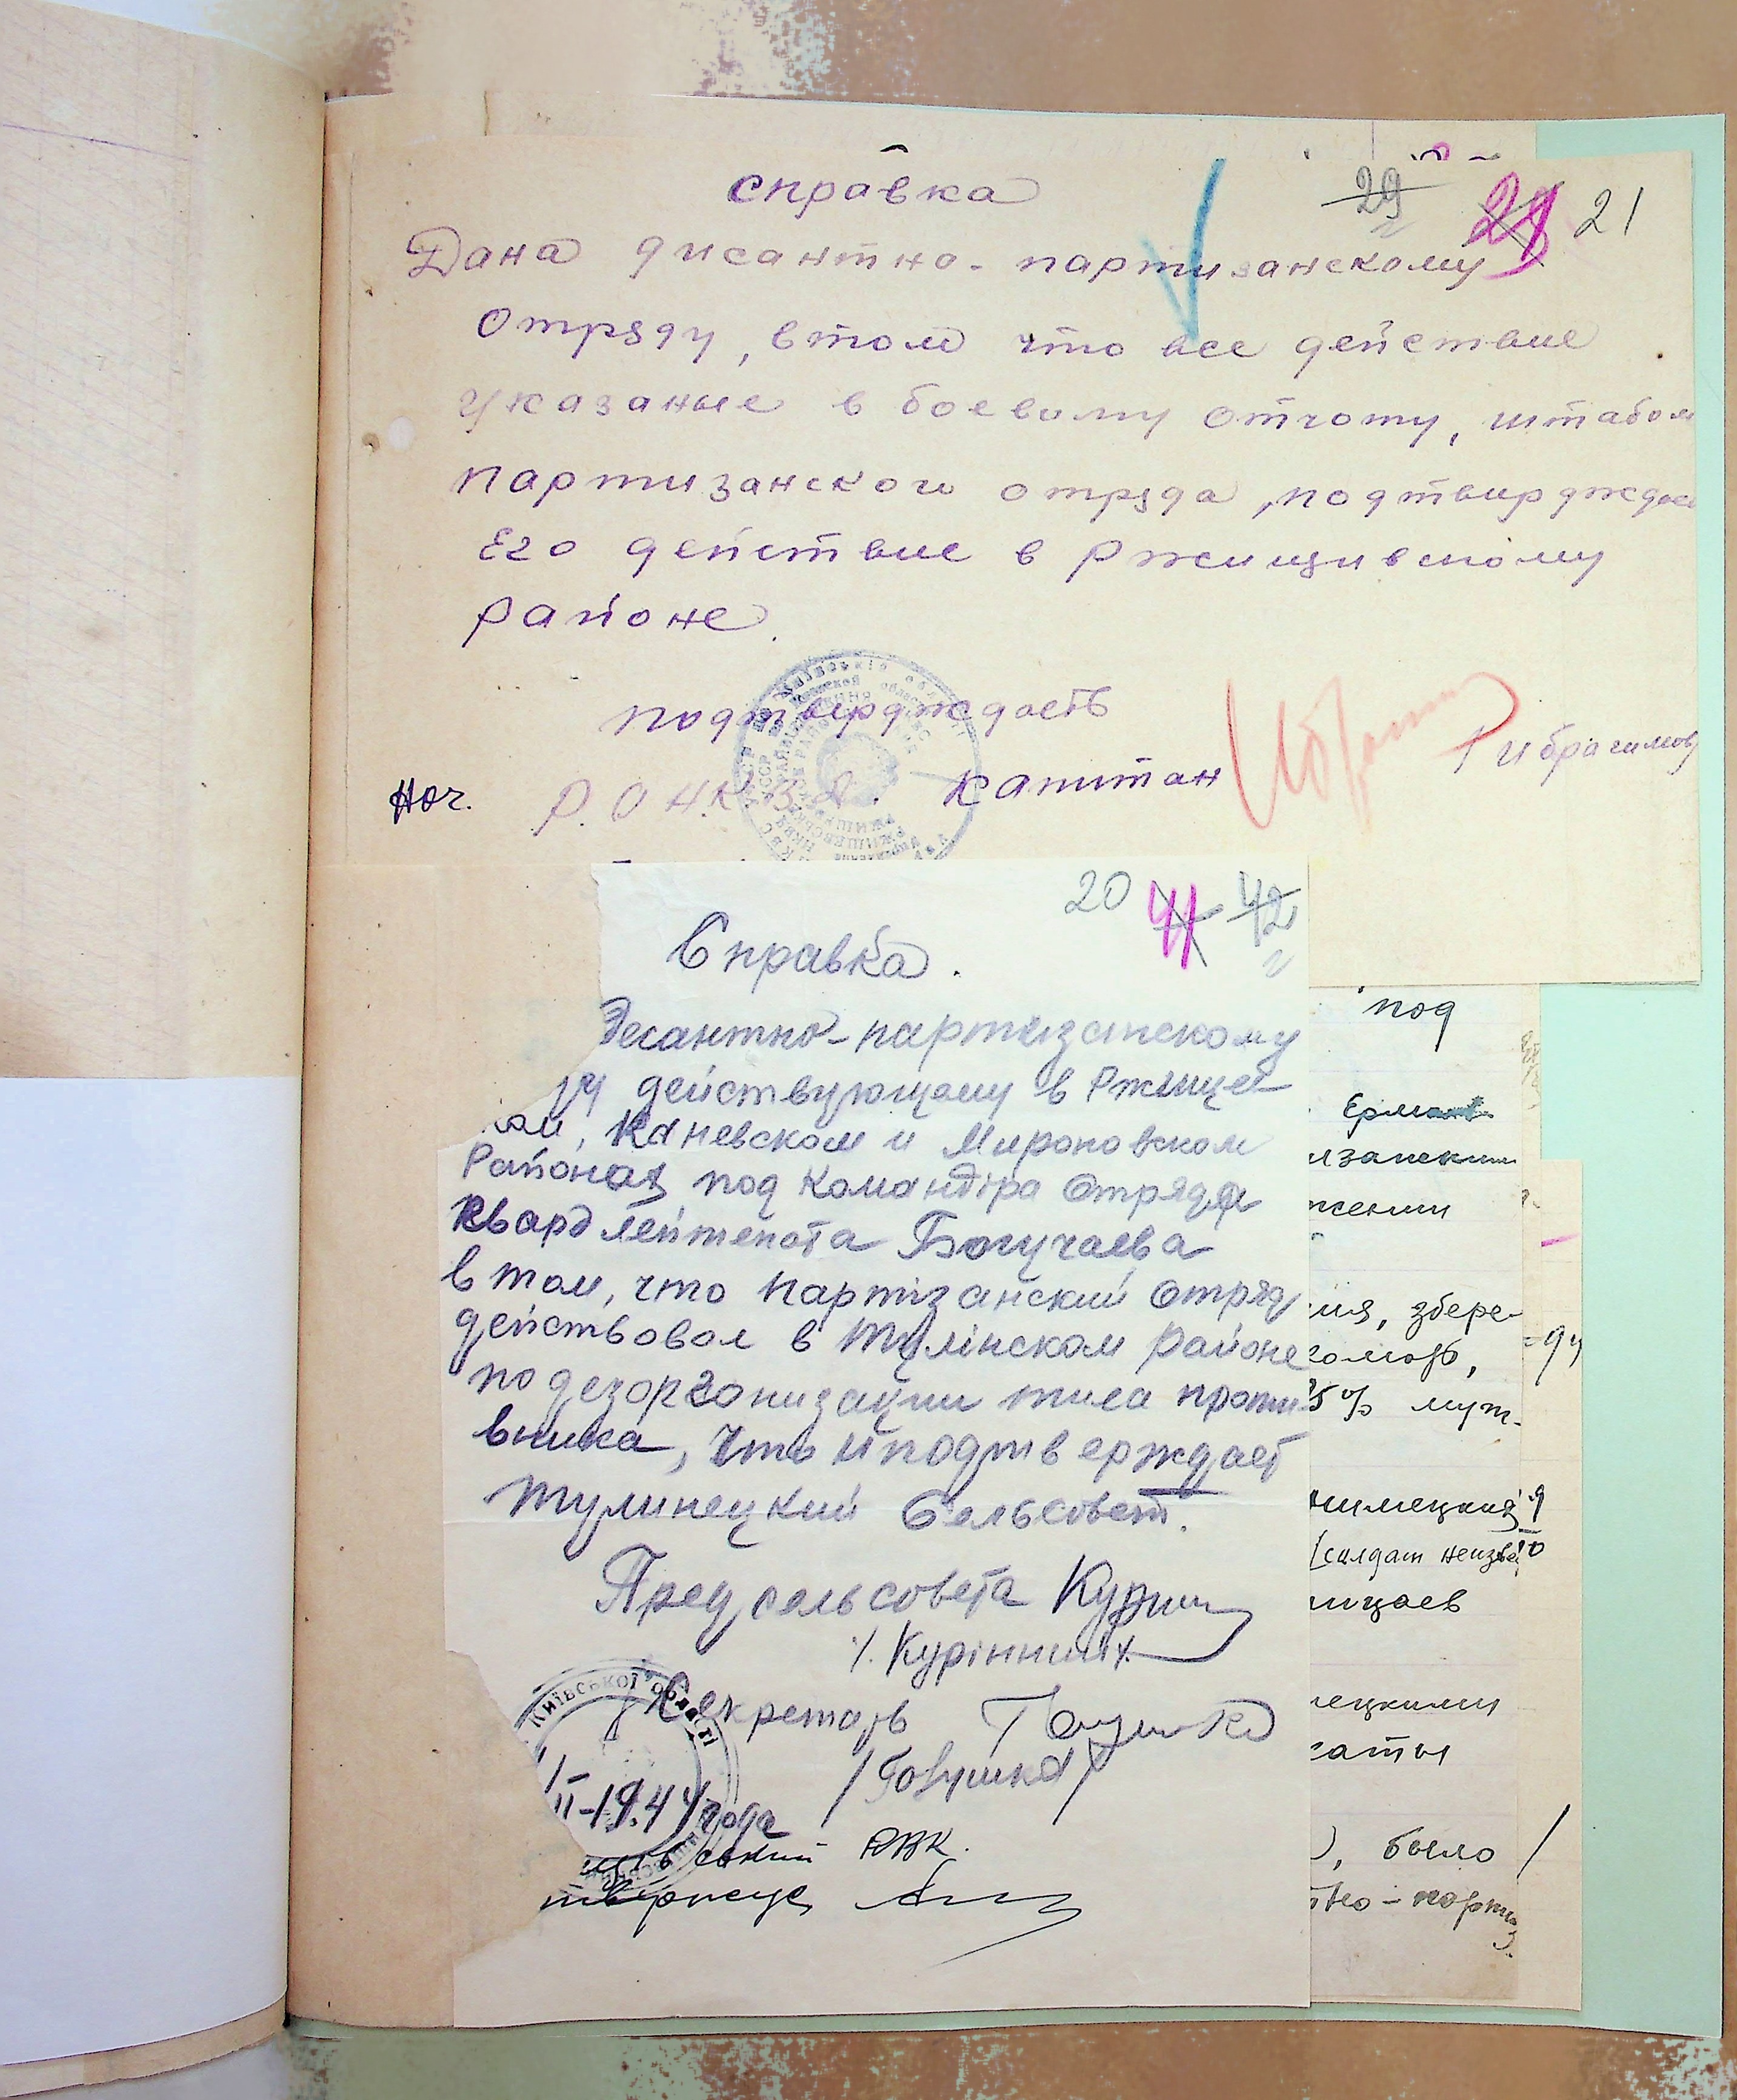 29 21
справка
Дана дисантно-партизанскому
отряду, втом что все действие
указаные в боевому отчоту, штабом
партизанского отряда, подтвирджда
Его действие в Ржищивскому
районе.
подтвирдждаеть
Нач. Р.О Н.К.В.Д. капитан /ибрагимов
20 41 42
Справка.
Десантно-партизанскому
ду действующему в Ржище-
ком, Каневском и Мироновском
Районах под Командіра Отряда
Гвард Лейтената Богучаева
в том, что партізанский Отряд
действовал в Тулінском районе
по дезорганизации тила проти-
вника, Что и подтверждает
Тулинецкий Сельсовет.
Пред сельсовета
/.Курінний/.
Секретарь
/Говушка/
КИЇВСЬКОЇ ОБЛАСТІ
II-19.44 года
івський РВК.
твержує
под
Ерма
изански
жении
ия, збере-
5% мут-
нимецкий
(солдат неизве
ицаев
ецкими
каты
), было
тно-парти